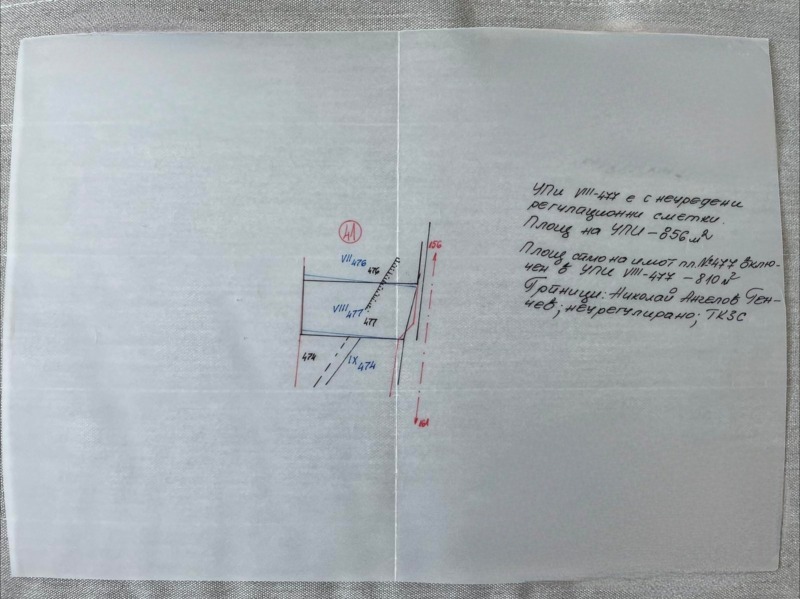 УПИ VIII-477 е с неуредени
регулационни сметки.
Площ на УПИ – 856 м²
Площ само на имот пл. №477 вклю-
чен в УПИ VIII-477 – 810 м²
Граници: Николай Ангелов Ген-
чев; неурегулирано; ТКЗС
41
VII 476
476
156
VIII 477
477
474
IX 474
161